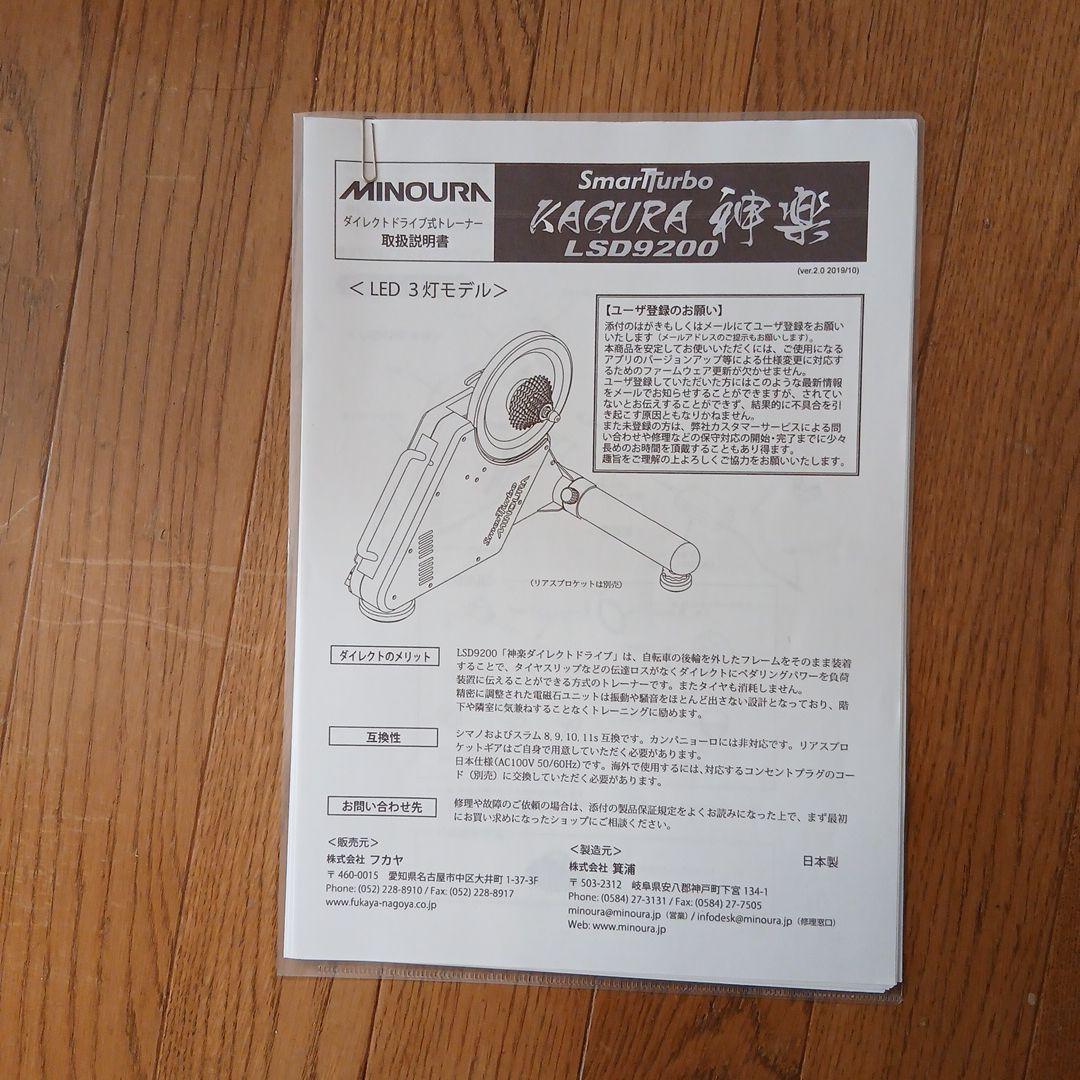 MINOURA
ダイレクトドライブ式トレーナー
取扱説明書
SmartTurbo
KAGURA 神楽
LSD9200
(ver.2.0 2019/10)
＜LED 3灯モデル＞
【ユーザ登録のお願い】
添付のはがきもしくはメールにてユーザ登録をお願い
いたします（メールアドレスのご提示もお願いします）。
本商品を安定してお使いいただくには、ご使用になる
アプリのバージョンアップ等による仕様変更に対応す
るためのファームウェア更新が欠かせません。
ユーザ登録していただいた方にはこのような最新情報
をメールでお知らせすることができますが、されてい
ないとお伝えすることができず、結果的に不具合を引
き起こす原因ともなりかねません。
また未登録の方は、弊社カスタマーサービスによる問
い合わせや修理などの保守対応の開始・完了までに少々
長めのお時間を頂戴することもあり得ます。
趣旨をご理解の上よろしくご協力をお願いいたします。
SmartTurbo
MINOURA
（リアスプロケットは別売）
ダイレクトのメリット
LSD9200「神楽ダイレクトドライブ」は、自転車の後輪を外したフレームをそのまま装着
することで、タイヤスリップなどの伝達ロスがなくダイレクトにペダリングパワーを負荷
装置に伝えることができる方式のトレーナーです。またタイヤも消耗しません。
精密に調整された電磁石ユニットは振動や騒音をほとんど出さない設計となっており、階
下や隣室に気兼ねすることなくトレーニングに励めます。
互換性
シマノおよびスラム 8, 9, 10, 11s 互換です。カンパニョーロには非対応です。リアスプロ
ケットギアはご自身で用意していただく必要があります。
日本仕様(AC100V 50/60Hz)です。海外で使用するには、対応するコンセントプラグのコー
ド（別売）に交換していただく必要があります。
お問い合わせ先
修理や故障のご依頼の場合は、添付の製品保証規定をよくお読みになった上で、まず最初
にお買い求めになったショップにご相談ください。
＜販売元＞
株式会社 フカヤ
〒460-0015 愛知県名古屋市中区大井町 1-37-3F
Phone: (052) 228-8910 / Fax: (052) 228-8917
www.fukaya-nagoya.co.jp
＜製造元＞
株式会社 箕浦
〒503-2312 岐阜県安八郡神戸町下宮 134-1
Phone: (0584) 27-3131 / Fax: (0584) 27-7505
minoura@minoura.jp（営業）/ infodesk@minoura.jp（修理窓口）
Web: www.minoura.jp
日本製